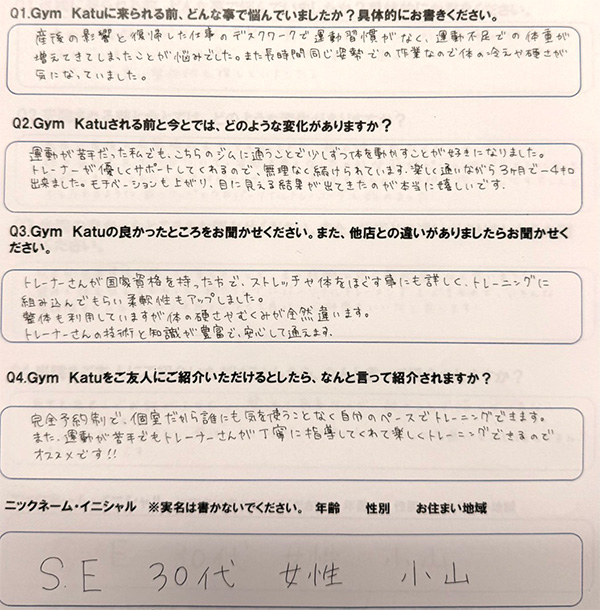 Q1.Gym Katuに来られる前、どんな事で悩んでいましたか？具体的にお書きください。
産後の影響と復帰した仕事のデスクワークで運動習慣がなく、運動不足での体重が
増えてきてしまったことが悩みでした。また長時間同じ姿勢での作業なので体の冷えや硬さが
気になっていました。
Q2.Gym Katuされる前と今とでは、どのような変化がありますか？
運動が苦手だった私でも、こちらのジムに通うことで少しずつ体を動かすことが好きになりました。
トレーナーが優しくサポートしてくれるので、無理なく続けられています。楽しく通いながら3ヶ月で-4キロ
出来ました。モチベーションも上がり、目に見える結果が出てきたのが本当に嬉しいです。
Q3.Gym Katuの良かったところをお聞かせください。また、他店との違いがありましたらお聞かせく
ださい。
トレーナーさんが国家資格を持った方で、ストレッチや体をほぐす事にも詳しく、トレーニングに
組み込んでもらい柔軟性もアップしました。
整体も利用していますが体の硬さやむくみが全然違います。
トレーナーさんの技術と知識が豊富で、安心して通えます。
Q4.Gym Katuをご友人にご紹介いただけるとしたら、なんと言って紹介されますか？
完全予約制で、個室だから誰にも気を使うことなく自分のペースでトレーニングできます。
また、運動が苦手でもトレーナーさんが丁寧に指導してくれて楽しくトレーニングできるので
オススメです!!
ニックネーム・イニシャル ※実名は書かないでください。 年齢 性別 お住まい地域
S.E 30代 女性 小山